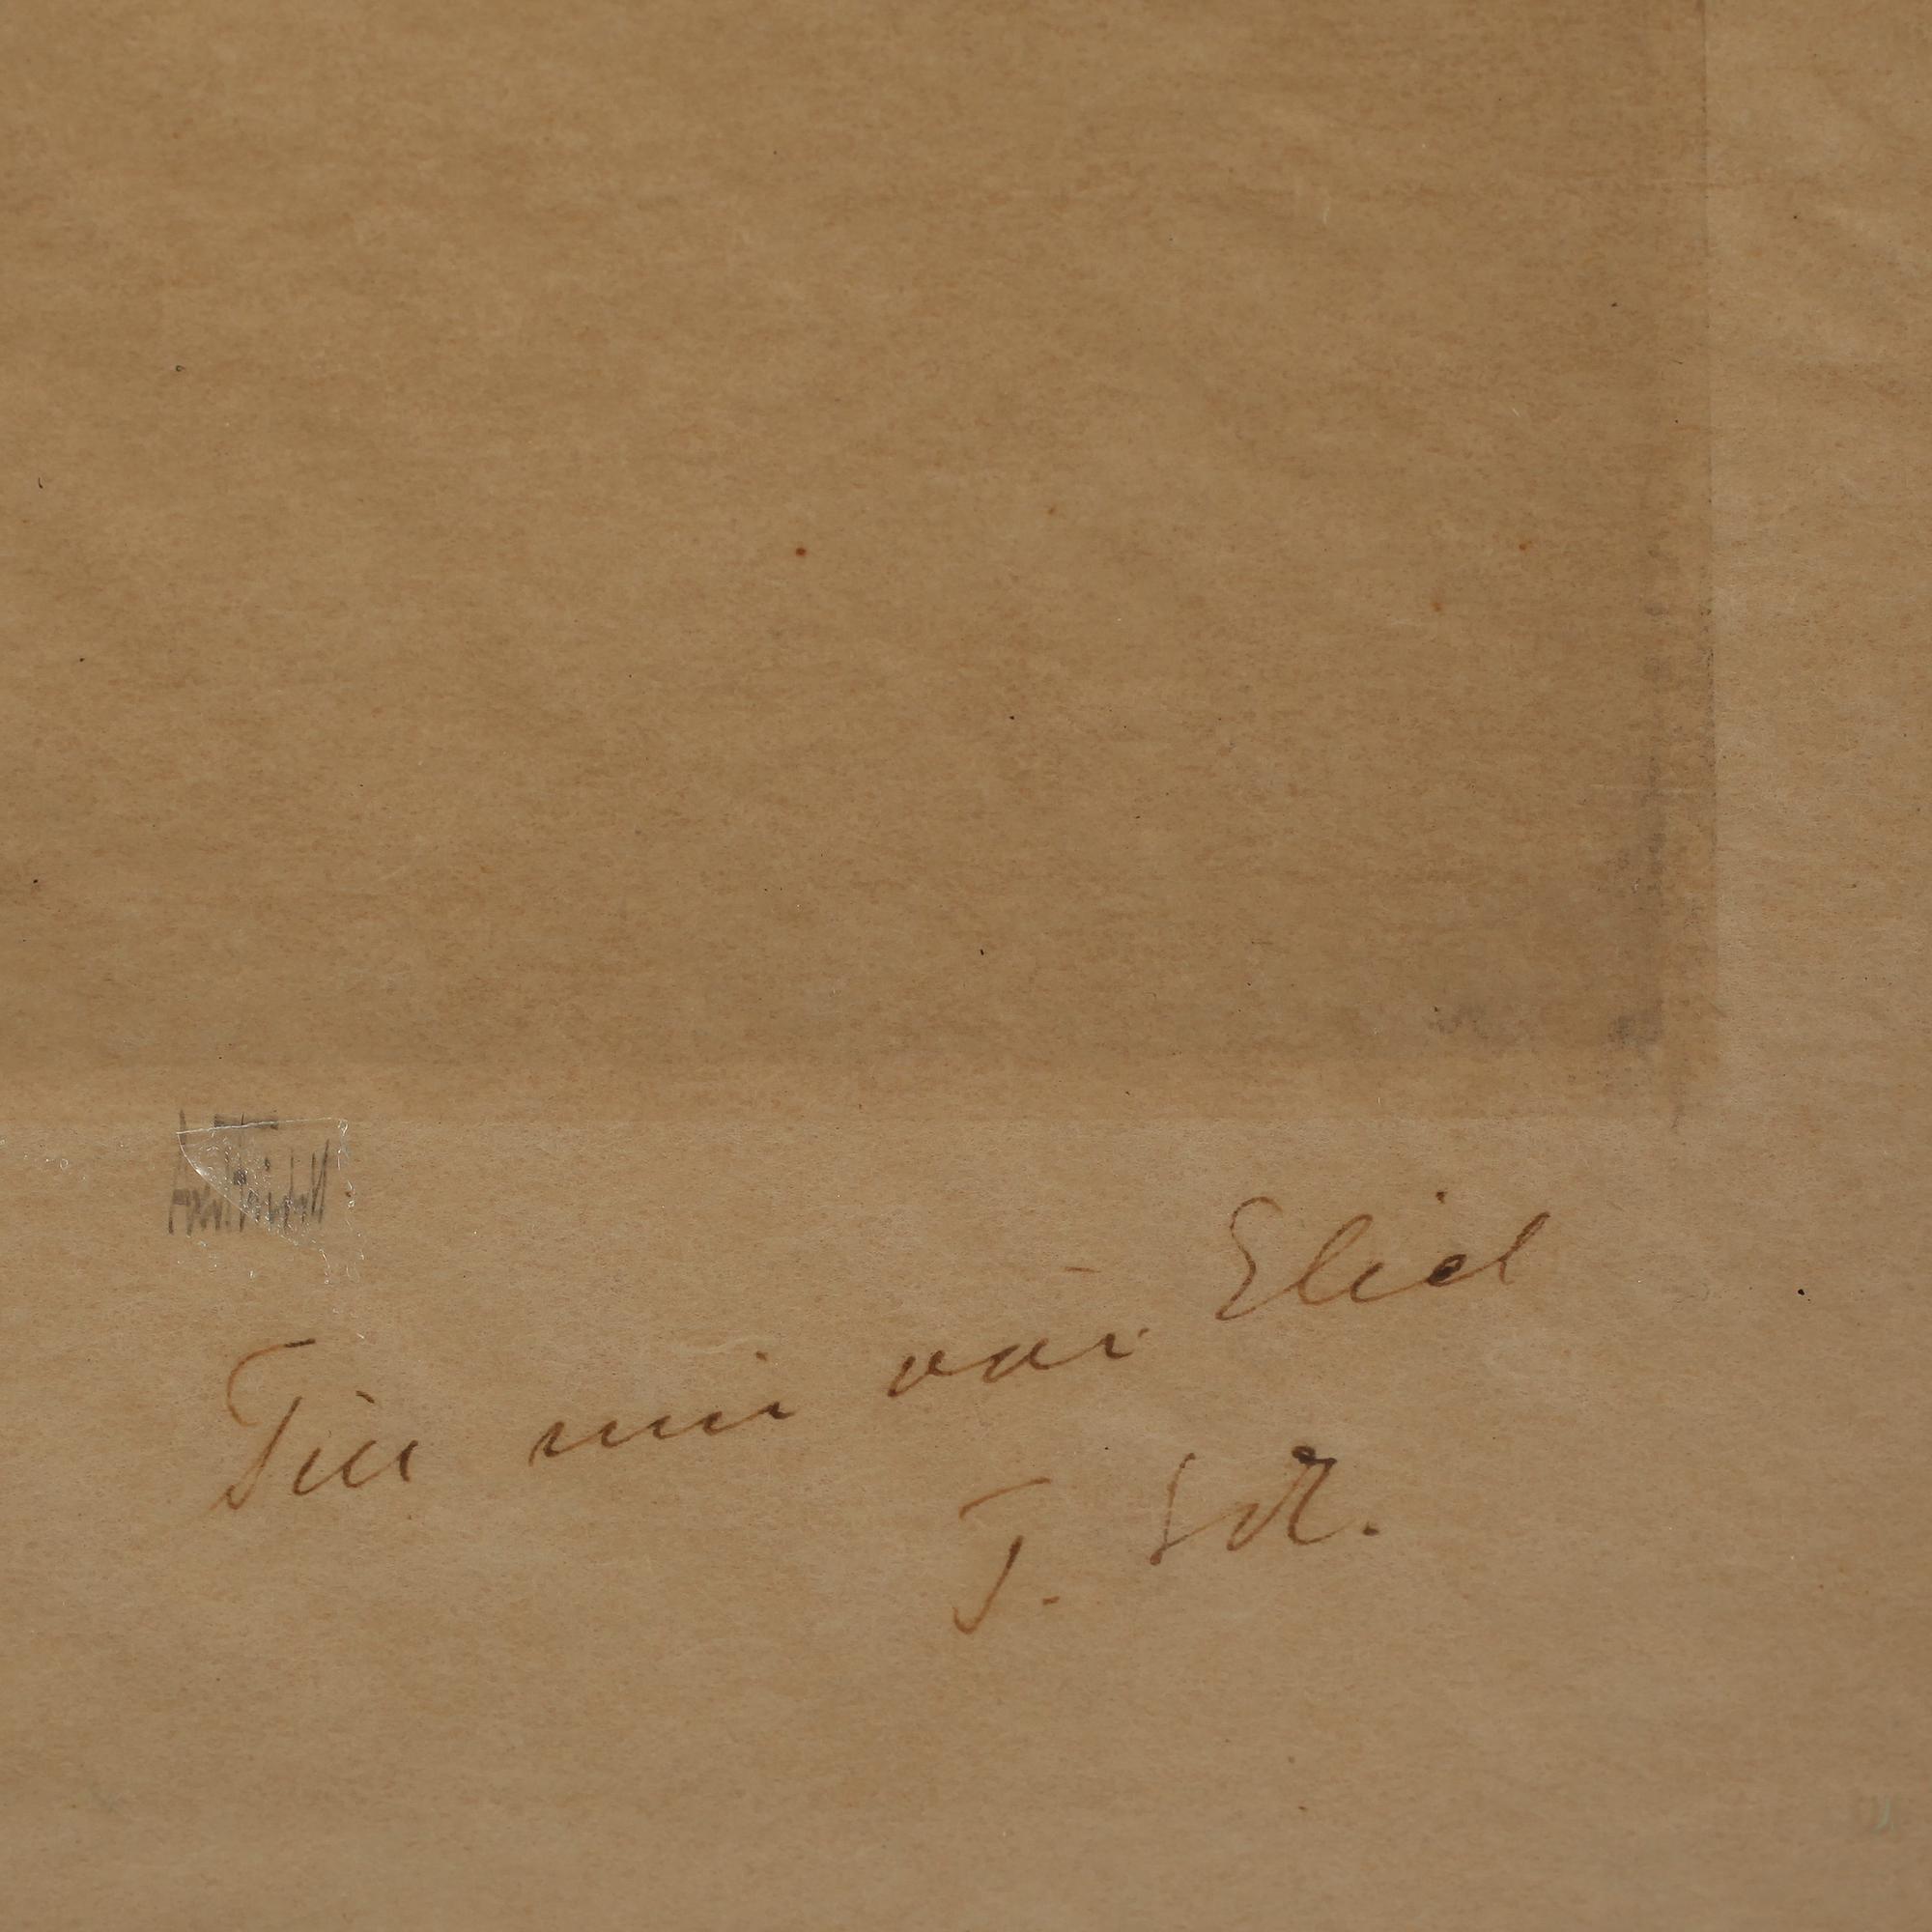 Till min vän Eliel
T. Sdr.